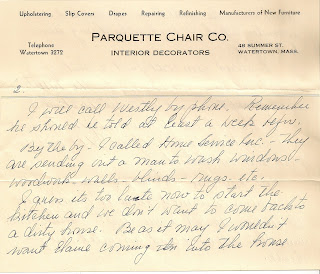 Upholstering Slip Covers Drapes Repairing Refinishing Manufacturers of New Furniture
Telephone
Watertown 3272
PARQUETTE CHAIR CO.
INTERIOR DECORATORS
46 SUMMER ST.
WATERTOWN, MASS.
2.
I will call Westly by phone. Remember
he should be told at least a week before.
By the by - I called Home Service Inc. - They
are sending out a man to wash windows -
woodwork - walls - blinds - rugs, etc.
I guess its too late now to start the
kitchen and we don't want to come back to
a dirty house. Be as it may I wouldn't
want Elaine coming in into the house